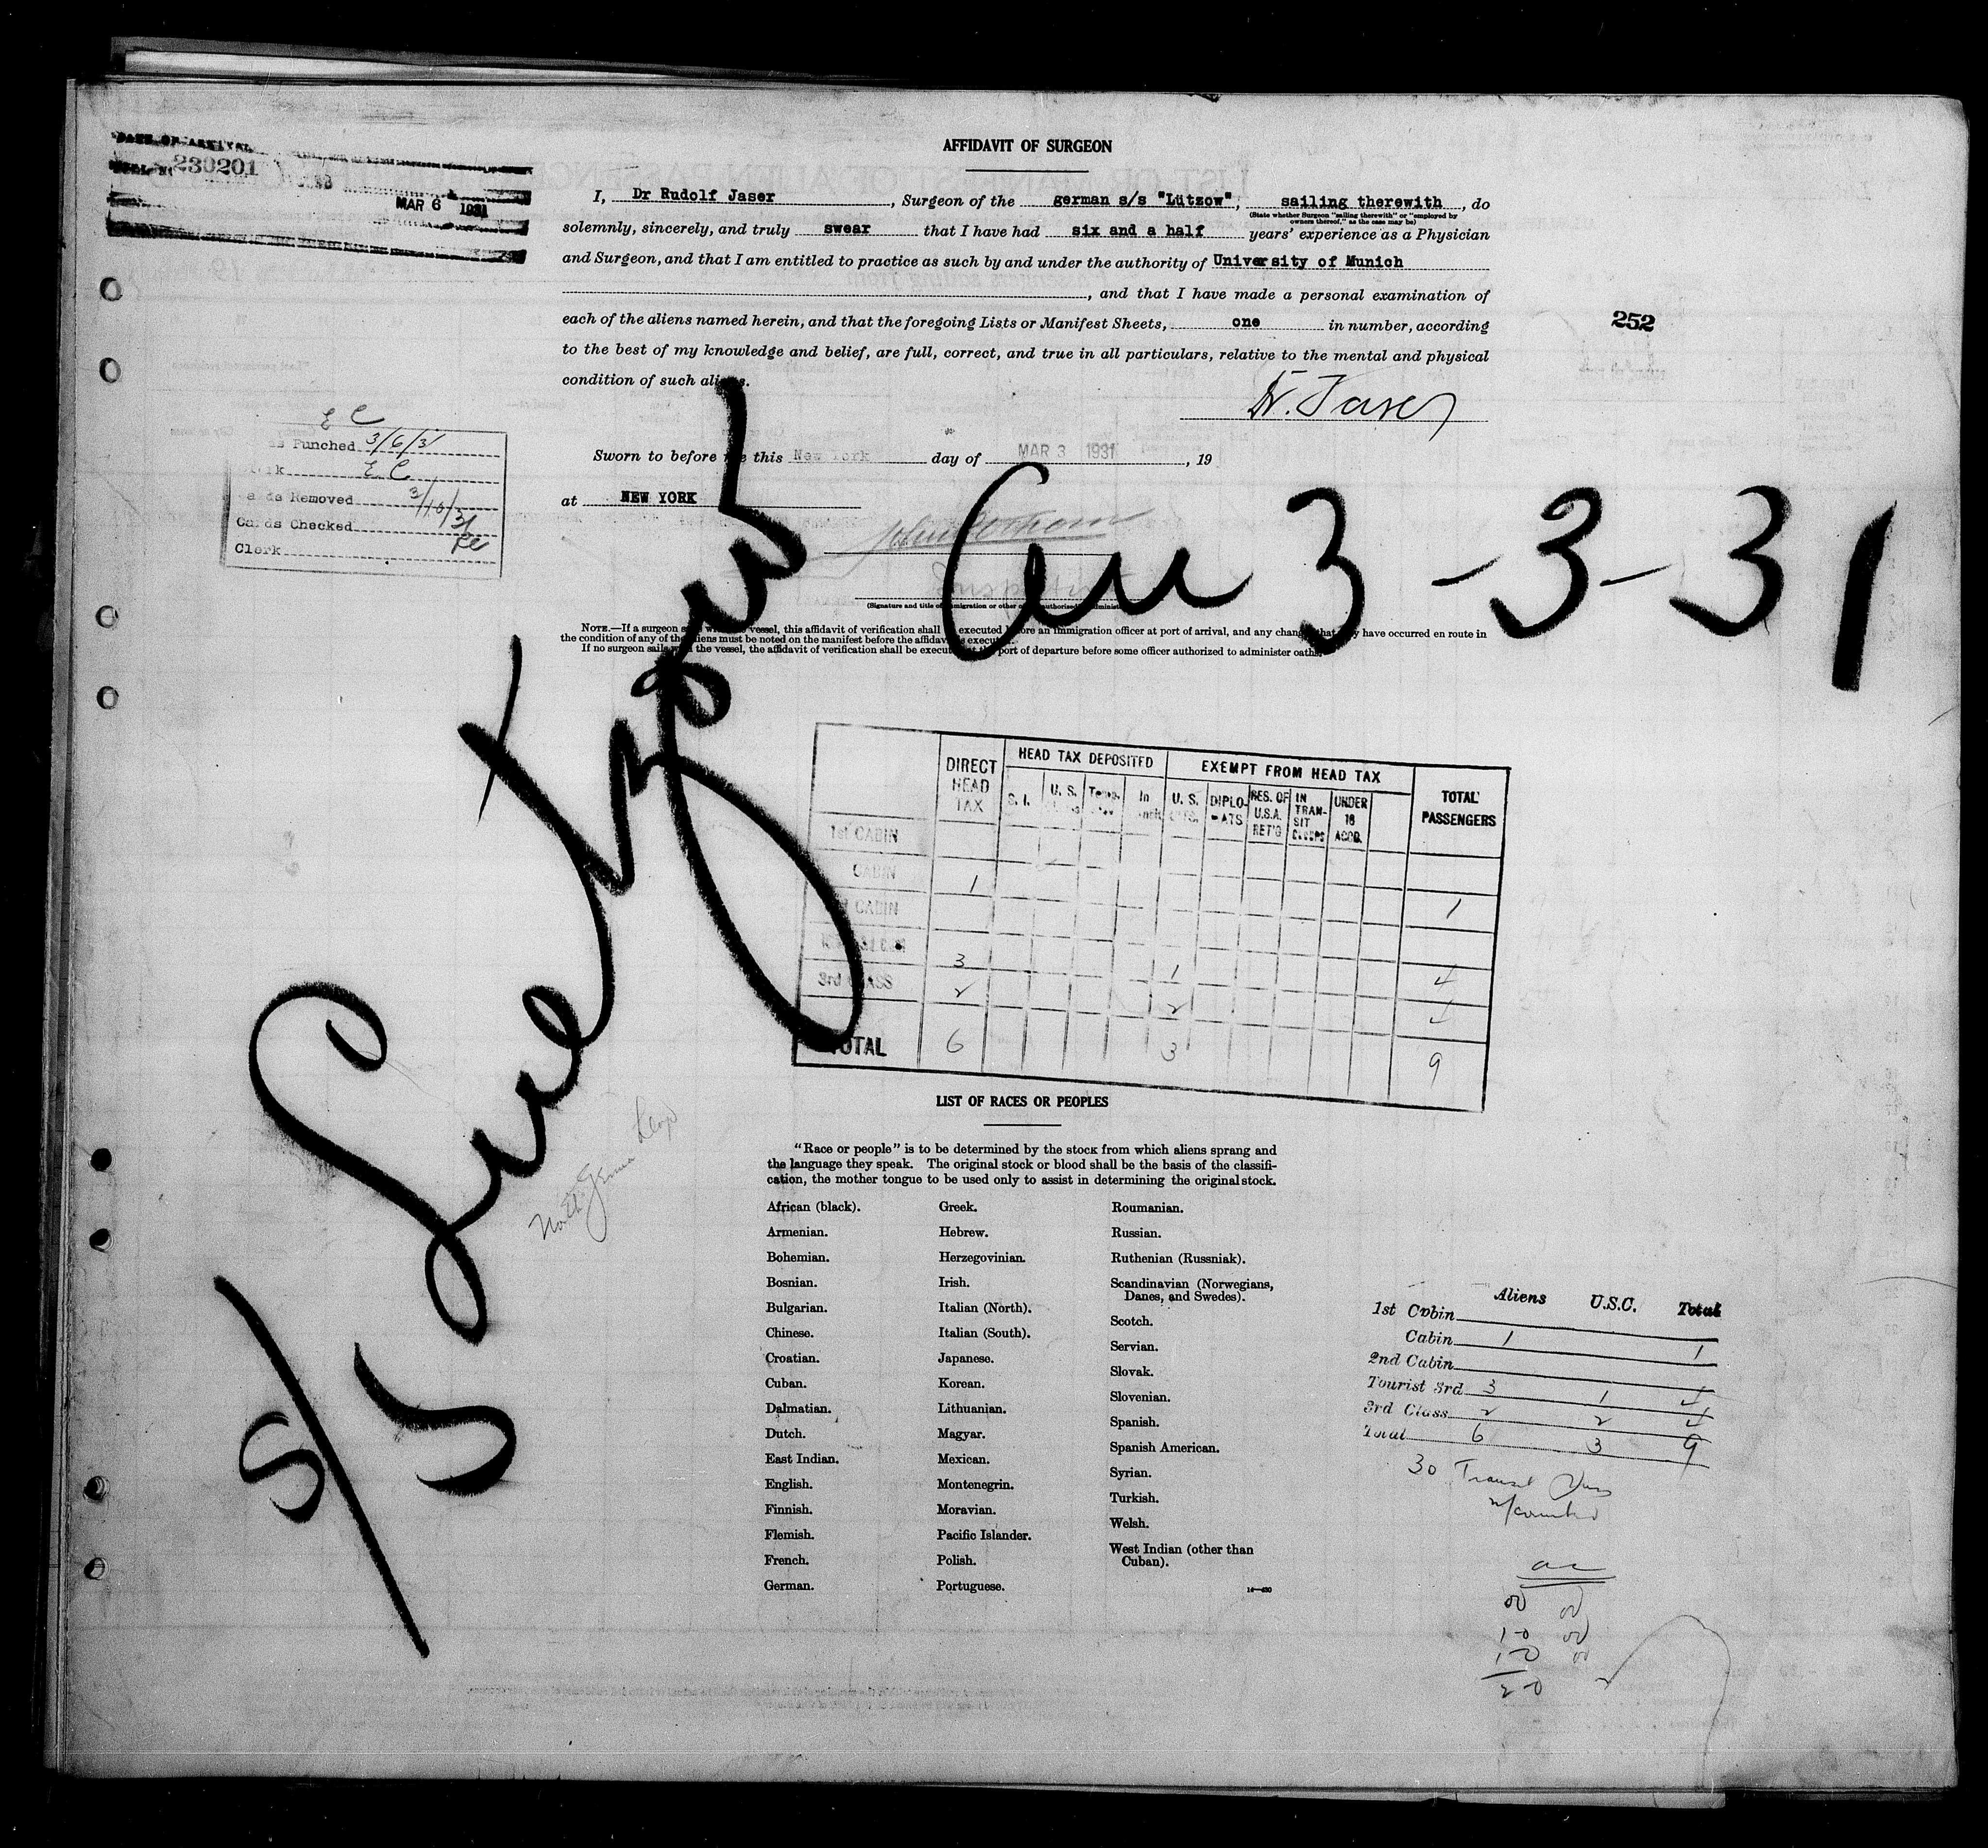 DATE OF ARRIVAL
230201
MAR 6 1931
AFFIDAVIT OF SURGEON
I, Dr Rudolf Jaser, Surgeon of the german s/s "Lützow", sailing therewith, do
(State whether Surgeon "sailing therewith" or "employed by owners thereof," as the case may be)
solemnly, sincerely, and truly swear that I have had six and a half years' experience as a Physician
and Surgeon, and that I am entitled to practice as such by and under the authority of University of Munich
, and that I have made a personal examination of
each of the aliens named herein, and that the foregoing Lists or Manifest Sheets, one in number, according
to the best of my knowledge and belief, are full, correct, and true in all particulars, relative to the mental and physical
condition of such aliens.
252
Dr. Jaser
Sworn to before me this New York day of MAR 3 1931, 19
at NEW YORK
Inspector
(Signature and title of immigration or other officer authorized to administer
E C
Punched 3/6/31
Clerk E C
Cards Removed 3/10/31
Cards Checked
Clerk
S/S Luetzow
Arr 3-3-31
NOTE.—If a surgeon sails with the vessel, this affidavit of verification shall be executed before an immigration officer at port of arrival, and any change that may have occurred en route in
the condition of any of the aliens must be noted on the manifest before the affidavit is executed.
If no surgeon sails with the vessel, the affidavit of verification shall be executed at the port of departure before some officer authorized to administer oaths.
DIRECT HEAD TAX
HEAD TAX DEPOSITED
EXEMPT FROM HEAD TAX
TOTAL PASSENGERS
S. I.
U. S.
In
U. S.
DIPLOMATS
RES. OF U.S.A. RET'G
IN TRANSIT
UNDER 16 ACCD.
1st CABIN
CABIN 1 1
CABIN
3 1 4
3rd CLASS 2 2 4
TOTAL 6 3 9
North German Lloyd
LIST OF RACES OR PEOPLES
"Race or people" is to be determined by the stock from which aliens sprang and
the language they speak. The original stock or blood shall be the basis of the classifi-
cation, the mother tongue to be used only to assist in determining the original stock.
African (black).
Armenian.
Bohemian.
Bosnian.
Bulgarian.
Chinese.
Croatian.
Cuban.
Dalmatian.
Dutch.
East Indian.
English.
Finnish.
Flemish.
French.
German.
Greek.
Hebrew.
Herzegovinian.
Irish.
Italian (North).
Italian (South).
Japanese.
Korean.
Lithuanian.
Magyar.
Mexican.
Montenegrin.
Moravian.
Pacific Islander.
Polish.
Portuguese.
Roumanian.
Russian.
Ruthenian (Russniak).
Scandinavian (Norwegians,
Danes, and Swedes).
Scotch.
Servian.
Slovak.
Slovenian.
Spanish.
Spanish American.
Syrian.
Turkish.
Welsh.
West Indian (other than
Cuban).
Aliens U.S.C. Total
1st Cabin
Cabin 1 1
2nd Cabin
Tourist 3rd 3 1 4
3rd Class 2 2 4
Total 6 3 9
30 Transit